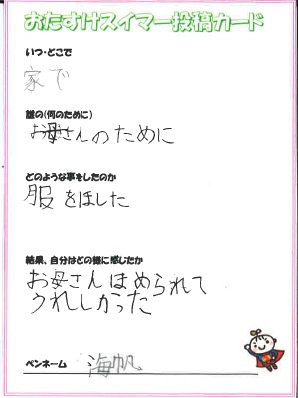 おたすけスイマー投稿カード
いつ・どこで
家で
誰の(何のために)
お母さんのために
どのような事をしたのか
服をほした
結果、自分はどの様に感じたか
お母さんほめられて
うれしかった
ペンネーム 海帆